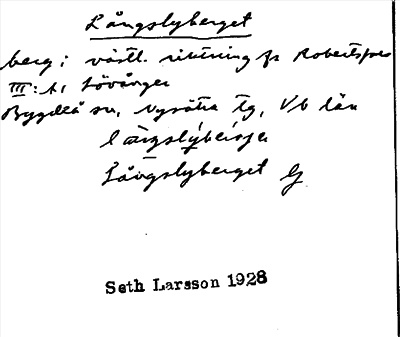 Långslyberget
berg i västl. riktning fr Robertsfors
III:1, Lövånger
Bygdeå sn, Nysätra tg, V/b län
långslýbeṙjə
Långslyberget G
Seth Larsson 1928